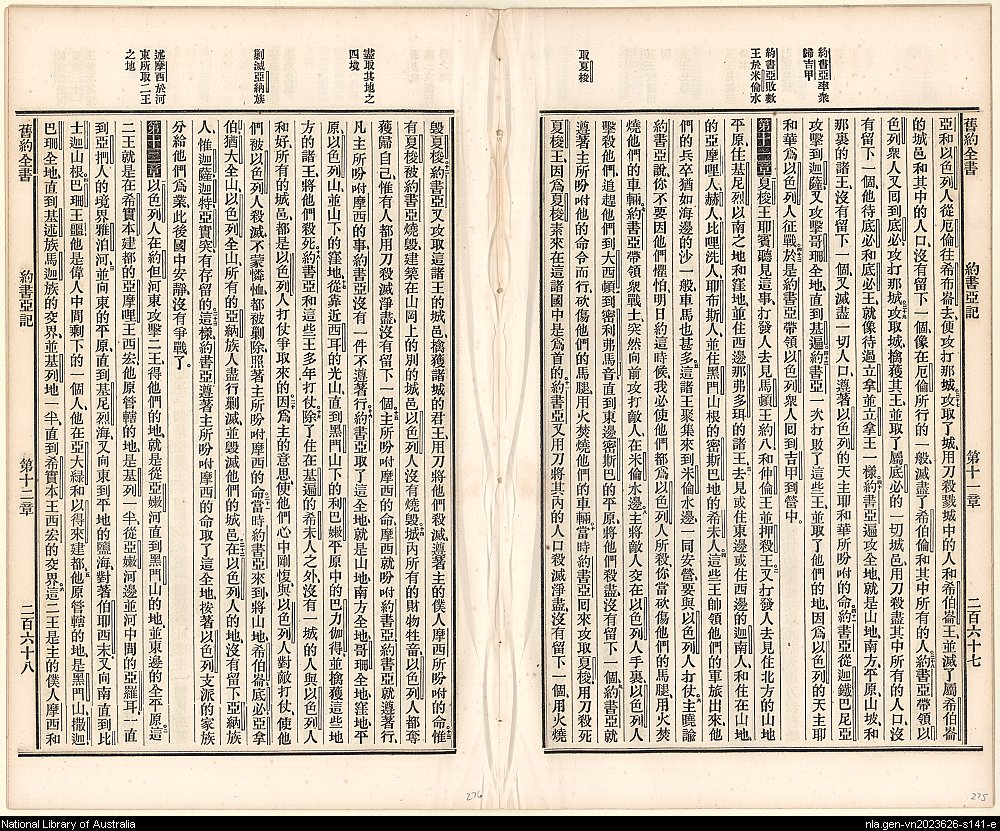 舊約全書 約書亞記 第十一章 二百六十七
約書亞率衆
歸吉甲
約書亞敗數
王於米倫水
取夏梭
亞和以色列人從厄倫往希布崙去便攻打那城攻取了城用刀殺戮城中的人和希伯崙王並滅了屬希伯崙
的城邑和其中的人口沒有留下一個像在厄倫所行的一般滅盡了希伯倫和其中所有的人約書亞帶領以
色列衆人又囘到底必攻打那城攻取城擒獲其王並取了屬底必的一切城邑用刀殺盡其中所有的人口沒
有留下一個他待底必和底必王就像待立拿並立拿王一樣約書亞遍攻全地就是山地南方平原山坡和
那裏的諸王沒有留下一個又滅盡一切人口遵著以色列的天主耶和華所吩咐的命約書亞從迦鐵巴尼亞
攻擊到迦薩又攻擊哥珊全地直到基遍約書亞一次打敗了這些王並取了他們的地因爲以色列的天主耶
和華爲以色列人征戰於是約書亞帶領以色列衆人囘到吉甲到營中
第十一章夏梭王耶賓聽見這事打發人去見馬頓王約八和伸倫王並押殺王又打發人去見住北方的山地
平原住基尼烈以南之地和窪地並住西邊那弗多珥的諸王去見或住東邊或住西邊的迦南人和住在山地
的亞摩哩人赫人比哩洗人耶布斯人並住黑門山根的密斯巴地的希未人這些王帥領他們的軍旅出來他
們的兵卒猶如海邊的沙一般車馬也甚多這諸王聚集來到米倫水邊一同安營要與以色列人打仗主曉諭
約書亞說你不要因他們懼怕明日約這時候我必使他們都爲以色列人所殺你當砍傷他們的馬腿用火焚
燒他們的車輛約書亞帶領衆戰士突然向前攻打敵人在米倫水邊主將敵人交在以色列人手裏以色列人
擊殺他們追趕他們到大西頓到密利弗馬音直到東邊密斯巴的平原將他們殺盡沒有留下一個約書亞就
遵著主所吩咐他的命令而行砍傷他們的馬腿用火焚燒他們的車輛當時約書亞囘來攻取夏梭用刀殺死
夏梭王因爲夏梭素來在這諸國中是爲首的約書亞又用刀將其內的人口殺滅淨盡沒有留下一個用火燒
275
盡取其地之
四境
剿滅亞納族
述摩西於河
東所取二王
之地
毀夏梭約書亞又攻取這諸王的城邑擒獲諸城的君王用刀將他們殺滅遵著主的僕人摩西所吩咐的命惟
有夏梭被約書亞燒毀建築在山岡上的別的城邑以色列人沒有燒毀城內所有的財物牲畜以色列人都奪
獲歸自己惟有人都用刀殺滅淨盡沒有留下一個主所吩咐摩西的命摩西就吩咐約書亞約書亞就遵著行
凡主所吩咐摩西的事約書亞沒有一件不遵著行約書亞取了這全地就是山地南方全地哥珊全地窪地平
原以色列山並山下的窪地從靠近西耳的光山直到黑門山下的利巴嫩平原中的巴力伽得並擒獲這些地
方的諸王將他們殺死約書亞和這些王多年打仗除了住在基遍的希未人之外沒有一城的人與以色列人
和好所有的城邑都是以色列人打仗爭取來的因爲主的意思使他們心中剛愎與以色列人對敵打仗使他
們被以色列人殺滅不蒙憐恤都被剿除照著主所吩咐摩西的命當時約書亞來到將山地希伯崙底必亞拿
伯猶大全山以色列全山所有的亞納族人盡行剿滅並毀滅他們的城邑在以色列人的地沒有留下亞納族
人惟迦薩迦特亞實突有存留的這樣約書亞遵著主所吩咐摩西的命取了這全地按著以色列支派的家族
分給他們爲業此後國中安靜沒有爭戰了
第十二章以色列人在約但河東攻擊二王得他們的地就是從亞嫩河直到黑門山的地並東邊的全平原這
二王就是在希實本建都的亞摩哩王西宏他原管轄的地是基列一半從亞嫩河邊並河中間的亞羅耳一直
到亞捫人的境界雅泊河並向東的平原直到基尼烈海又向東到平地的鹽海對著伯耶西末又向南直到比
士迦山根巴珊王噩他是偉人中間剩下的一個人他在亞大綠和以得來建都他原管轄的地是黑門山撒迦
巴珊全地直到基述族馬迦族的交界並基列地一半直到希實本王西宏的交界這二王是主的僕人摩西和
舊約全書 約書亞記 第十二章 二百六十八
276
National Library of Australia
nla.gen-vn2023626-s141-e